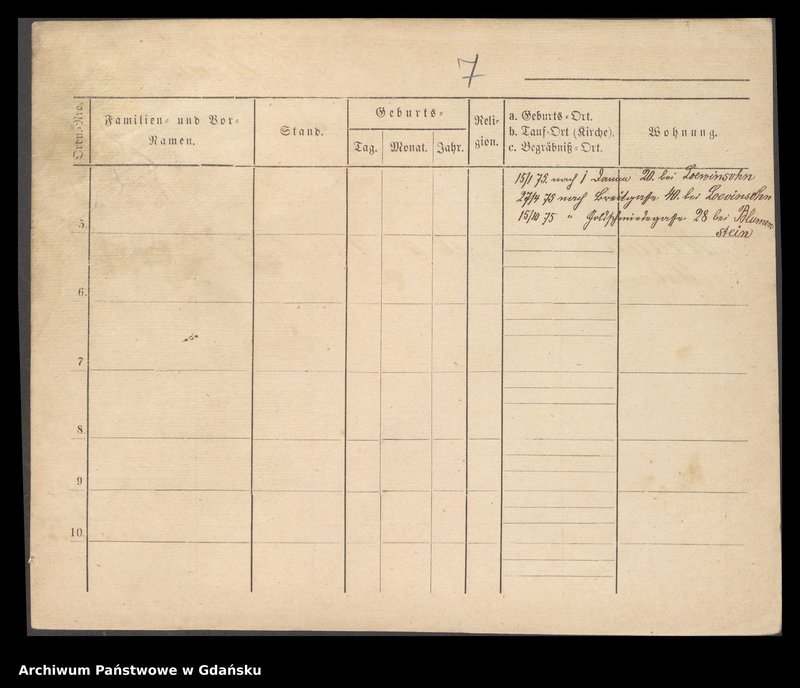 7
Ordn.-Nro.
Familien- und Vor-
Namen.
Stand.
Geburts-
Tag.
Monat.
Jahr.
Reli-
gion.
a. Geburts-Ort.
b. Tauf-Ort (Kirche).
c. Begräbniß-Ort.
Wohnung.
15/1 75. nach 1 Damm 20. bei Loewinsohn
27/4 75 nach Breitgasse 40. bei Loevinsohn
15/10 75 " Goldschmiedegasse 28 bei Blumen
stein
5.
6.
7
8.
9
10
Archiwum Państwowe w Gdańsku